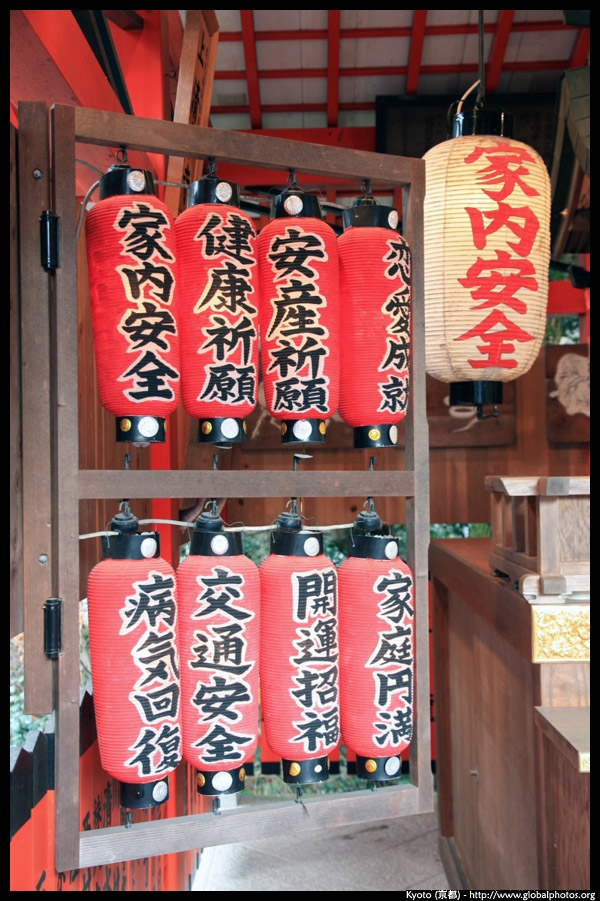 家内安全
健康祈願
安産祈願
恋愛成就
家内安全
病気回復
交通安全
開運招福
家庭円満
Kyoto (京都) - http://www.globalphotos.org